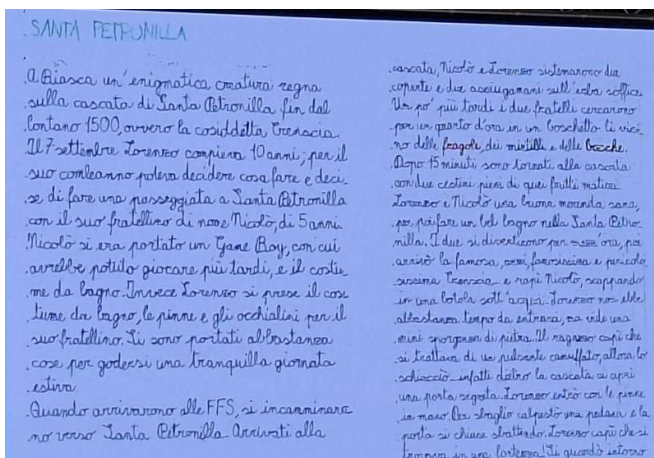 SANTA PETRONILLA
A Biasca un'enigmatica creatura regna
sulla cascata di Santa Petronilla fin dal
lontano 1500, ovvero la cosiddetta Crenscia.
Il 7 settembre Lorenzo compieva 10 anni; per il
suo comleanno poteva decidere cosa fare e deci
se di fare una passeggiata a Santa Petronilla
con il suo fratellino di nome Nicolò, di 5 anni.
Nicolò si era portato un Game Boy, con cui
avrebbe potuto giocare più tardi, e il costu
me da bagno. Invece Lorenzo si prese il cos
tume da bagno, le pinne e gli occhialini per il
suo fratellino. Si sono portati abbastanza
cose per godersi una tranquilla giornata
estiva.
Quando arrivarono alle FFS, si incammina
no verso Santa Petronilla. Arrivati alla
cascata, Nicolò e Lorenzo sistemarono due
coperte e due asciugamani sull'erba soffice.
Un po' più tardi i due fratelli cercarono
per un quarto d'ora in un boschetto lì vici
no delle fragole, dei mirtilli e delle bacche.
Dopo 15 minuti sono tornati alla cascata
con due cestini pieni di quei frutti maturi.
Lorenzo e Nicolò una buona merenda sana,
per poi fare un bel bagno nella Santa Petro
nilla. I due si divertirono per ora, poi
arrivò la famosa, famosissima e pericolo
sissima Crenscia e rapì Nicolò, scappando
in una botola sott'acqua. Lorenzo non ebbe
abbastanza tempo da entrare, ma vide una
mini sporgenza di pietra. Il ragazzo capì che
si trattava di un pulsante camuffato, allora lo
schiacciò infatti dietro la cascata si aprì
una porta segreta. Lorenzo entrò con le pinne
in mano. Per sbaglio calpestò una pedana e la
porta si chiuse sbattendo. Lorenzo capì che si
trovava in una fortezza. Si guardò intorno